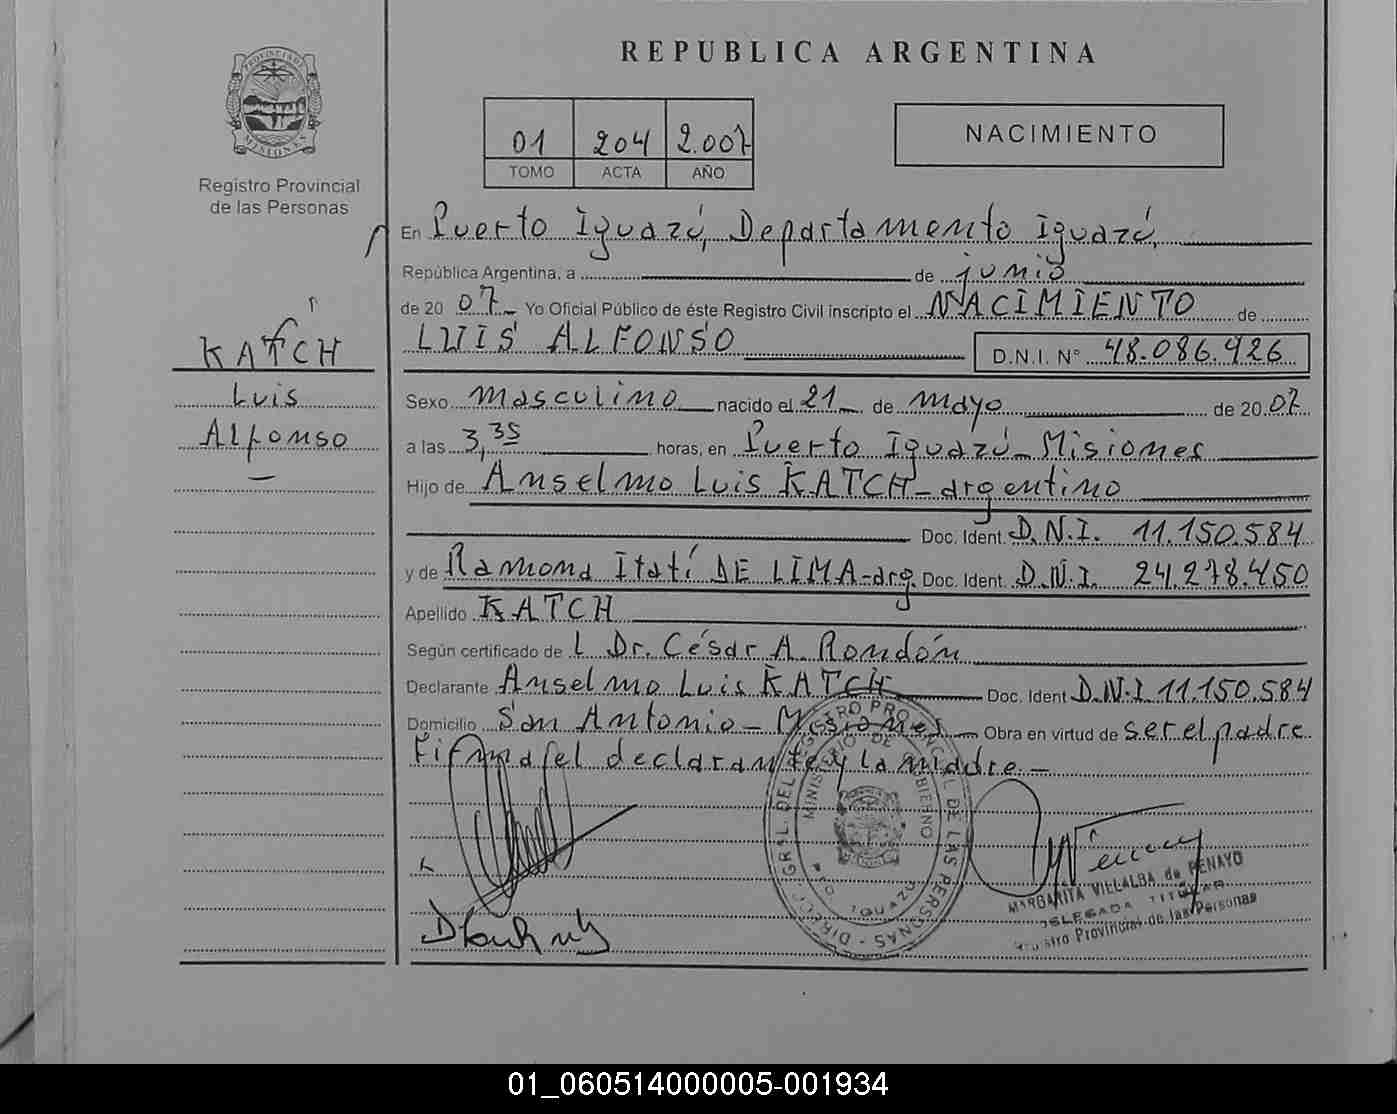 REPUBLICA ARGENTINA
PROVINCIA DE MISIONES
Registro Provincial
de las Personas
01 204 2.007
TOMO ACTA AÑO
NACIMIENTO
KATCH
Luis
Alfonso
En Puerto Iguazú, Departamento Iguazú,
República Argentina, a de junio
de 20 07 Yo Oficial Público de éste Registro Civil inscripto el NACIMIENTO de
LUIS ALFONSO D.N.I. Nº 48.086.426
Sexo masculino nacido el 21 de mayo de 20 07
a las 3,35 horas, en Puerto Iguazú - Misiones
Hijo de Anselmo Luis KATCH - argentino
Doc. Ident. D.N.I. 11.150.584
y de Ramona Itatí DE LIMA - arg. Doc. Ident. D.N.I. 24.278.450
Apellido KATCH
Según certificado de l Dr. César A. Rondón
Declarante Anselmo Luis KATCH Doc. Ident D.N.I. 11.150.584
Domicilio San Antonio - Misiones Obra en virtud de ser el padre
Firma del declarante y la madre -
DIRECC. GRAL. DEL REGISTRO PROVINCIAL DE LAS PERSONAS
MINISTERIO DE GOBIERNO
IGUAZU
MARGARITA VILLALBA de PENAYO
DELEGADA TITULAR
Registro Provincial de las Personas
01_060514000005-001934